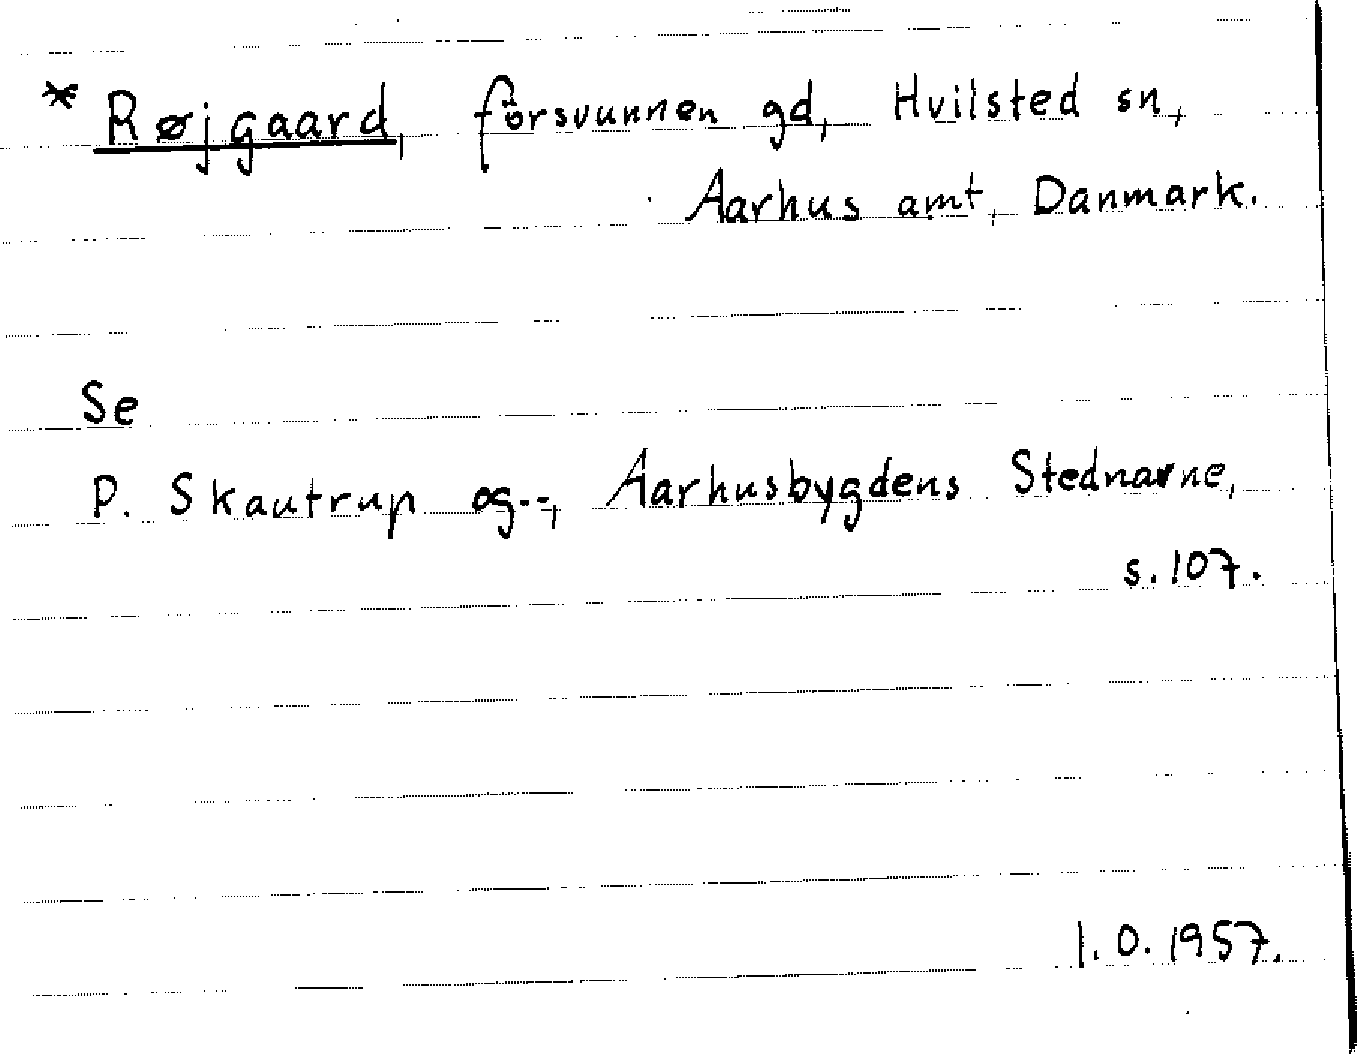 * Røjgaard, försvunnen gd, Hvilsted sn,
Aarhus amt, Danmark.
Se
P. Skautrup og--, Aarhusbygdens Stednavne,
s. 107.
I. O. 1957.